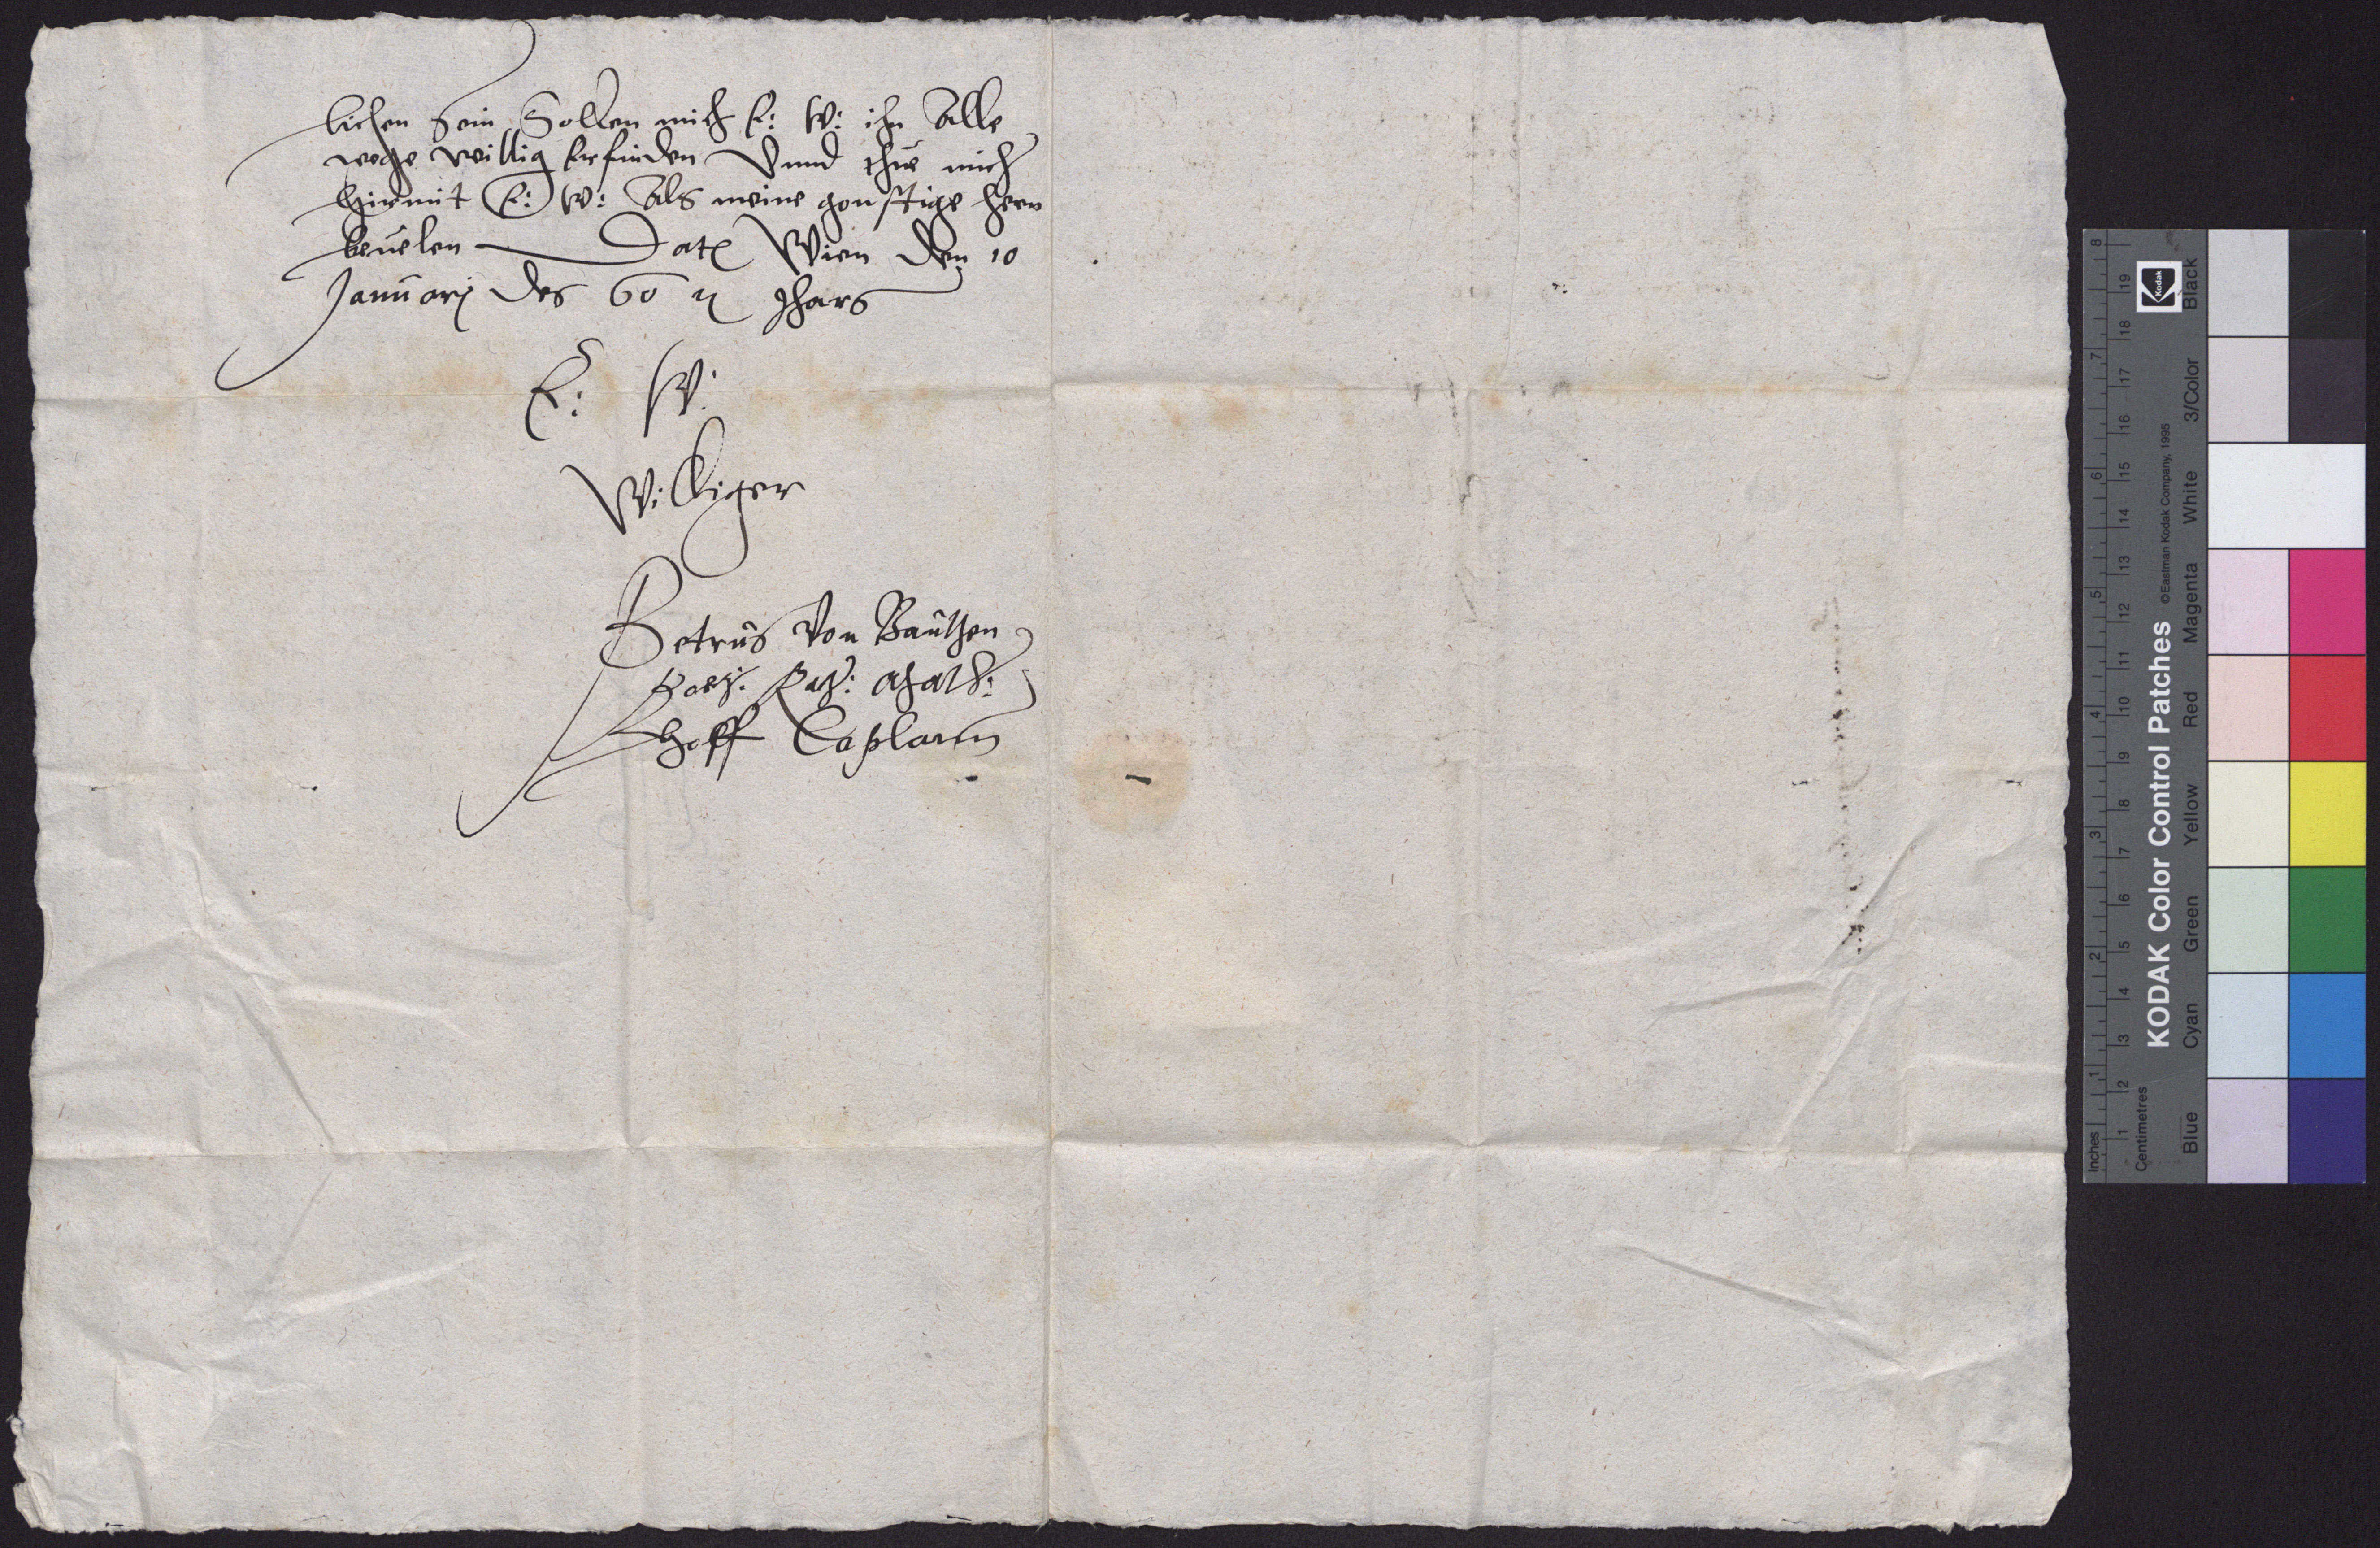 lichen sein Sollen mich E: W: ihn Alle
wege willig Erfinden Vnnd thue mich
hirmit E: W: Als meine gonstige hern
beuelen Datz Wien den 10
Januarj des 60 n Jhars
E: W:
Williger
Petrus Von Bautzen
Hoff Caplann
8 7 6 5 4 3 2 1 Inches
19 18 17 16 15 14 13 12 11 10 9 8 7 6 5 4 3 2 1 Centimetres
Kodak
KODAK Color Control Patches ©Eastman Kodak Company, 1995
Blue Cyan Green Yellow Red Magenta White 3/Color Black